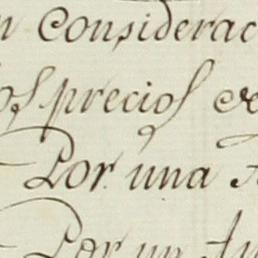 n Considerac
os precios de
Por una
Por un